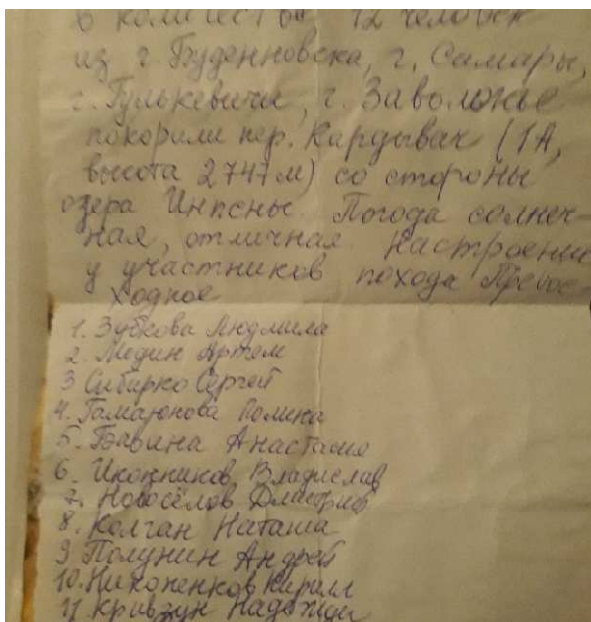 в количестве 12 человек
из г. Буденновска, г. Самары,
г. Гулькевичи, г. Заволжье
покорили пер. Кардывач (1А,
высота 2747 м) со стороны
озера Инпсны. Погода солнеч-
ная, отличная. Настроение
у участников похода Превос-
ходное
1. Зубкова Людмила
2. Медин Артем
3 Сибирко Сергей
4. Гамаюнова Полина
5. Анастасия
6. Иконников Владислав
7. Новосёлов Дмитрий
8. Колган Наташа
9 Полунин Андрей
10. Никоненков Кирилл
11. Кривзун Надежда